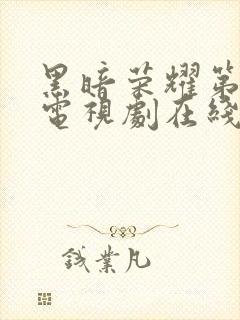 黑暗荣耀第
電視劇在綫
钱業凡